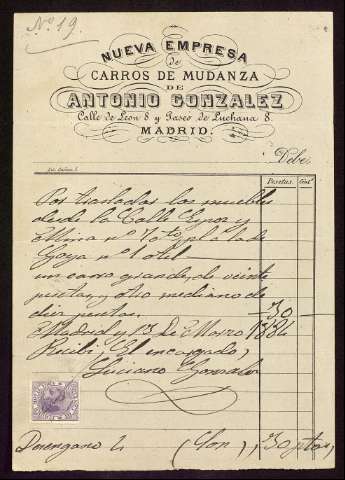 Nº 19.
NUEVA EMPRESA
de
CARROS DE MUDANZA
DE
ANTONIO GONZALEZ
Calle de Leon 8 y Paseo de Luchana 8.
MADRID.
Debe
Pesetas. Cent.
Por trasladar los muebles
desde la Calle Espoz y
Mina nº 7 pral a la de
Goya nº 1 otel
un carro grande, de veinte
pesetas, y otro mediano de
diez pesetas. 30
Madrid y 13 De Marzo 1884
Recibi, El encargado,
Luciano Gonzalez
(Son), 30 ptas,